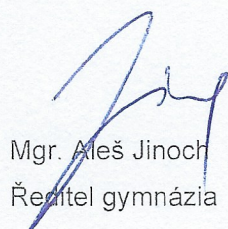 Mgr. Aleš Jinoch
Ředitel gymnázia